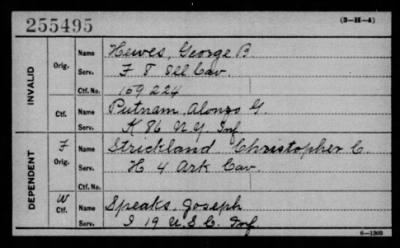 255495
(3-H-4)
INVALID
Orig.
Name Hewes, George B
Serv. F 7 Ill Cav.
Ctf. No. 169224
Ctf.
Name Putnam, Alonzo G.
Serv. K 86 N.Y. Inf
DEPENDENT
F
Orig.
Name Strickland Christopher C.
Serv. H 4 Ark Cav.
Ctf. No.
W
Ctf.
Name Speaks, Joseph
Serv. I 19 U.S.C. Inf.